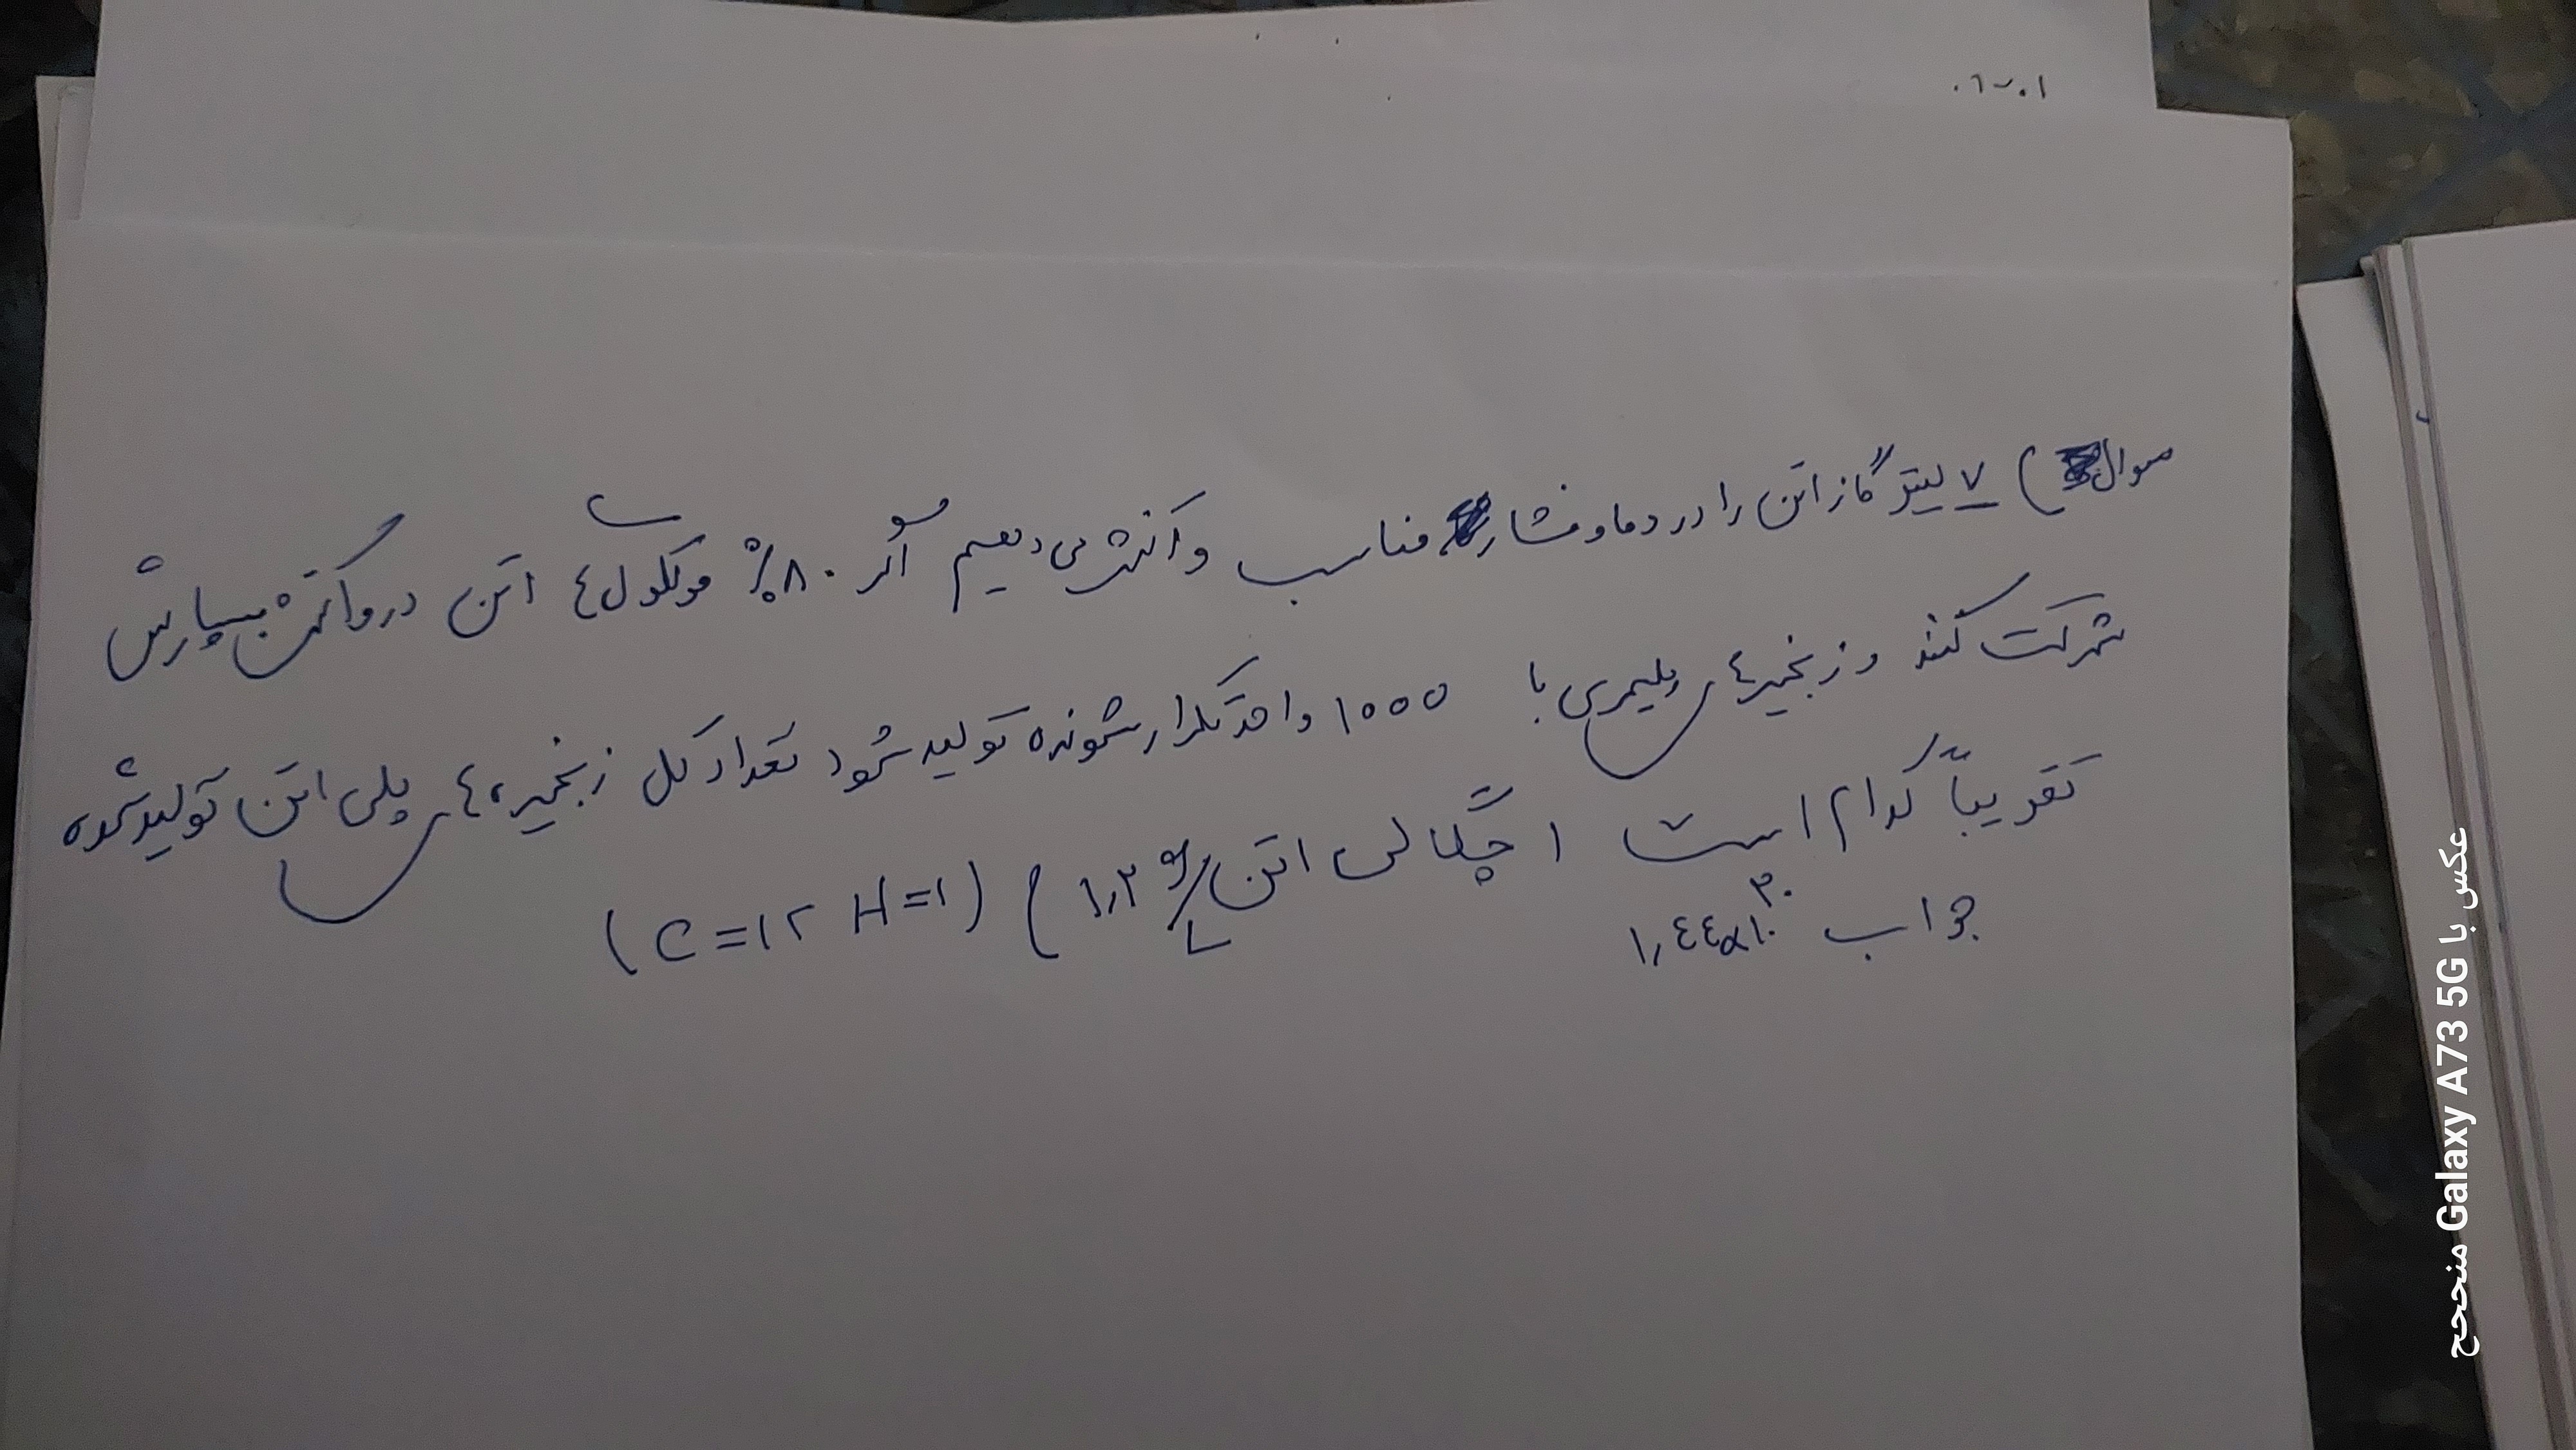 ۰۶-۰۱
سوال) ۷ لیتر گاز اتن را در دما و فشار مناسب واکنش می دهیم اگر ۸۰٪ مولکول های اتن در واکنش بسپارش
شرکت کنند و زنجیرهای پلیمری با ۱۰۰۰ واحد تکرار شونده تولید شود تعداد کل زنجیره های پلی اتن تولید شده
تقریباً کدام است (چگالی اتن ۱٫۲ g/L) (C=۱۲ H=۱)
جواب ۱٫۴۴×۱۰^۲۰
عکس با Galaxy A73 5G منححح